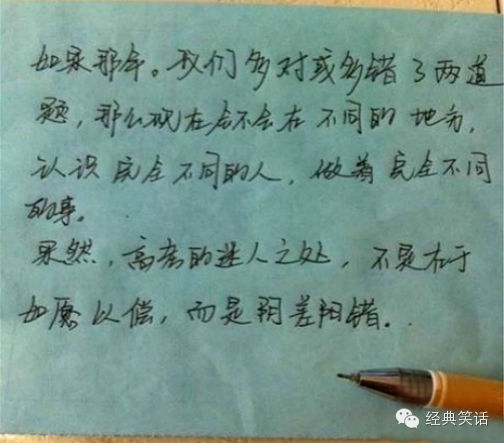 如果那年。我们多对或多错了两道
题，那么现在会不会在不同的地方，
认识完全不同的人，做着完全不同
的事。
果然，高考的迷人之处，不是在于
如愿以偿，而是阴差阳错。
经典笑话